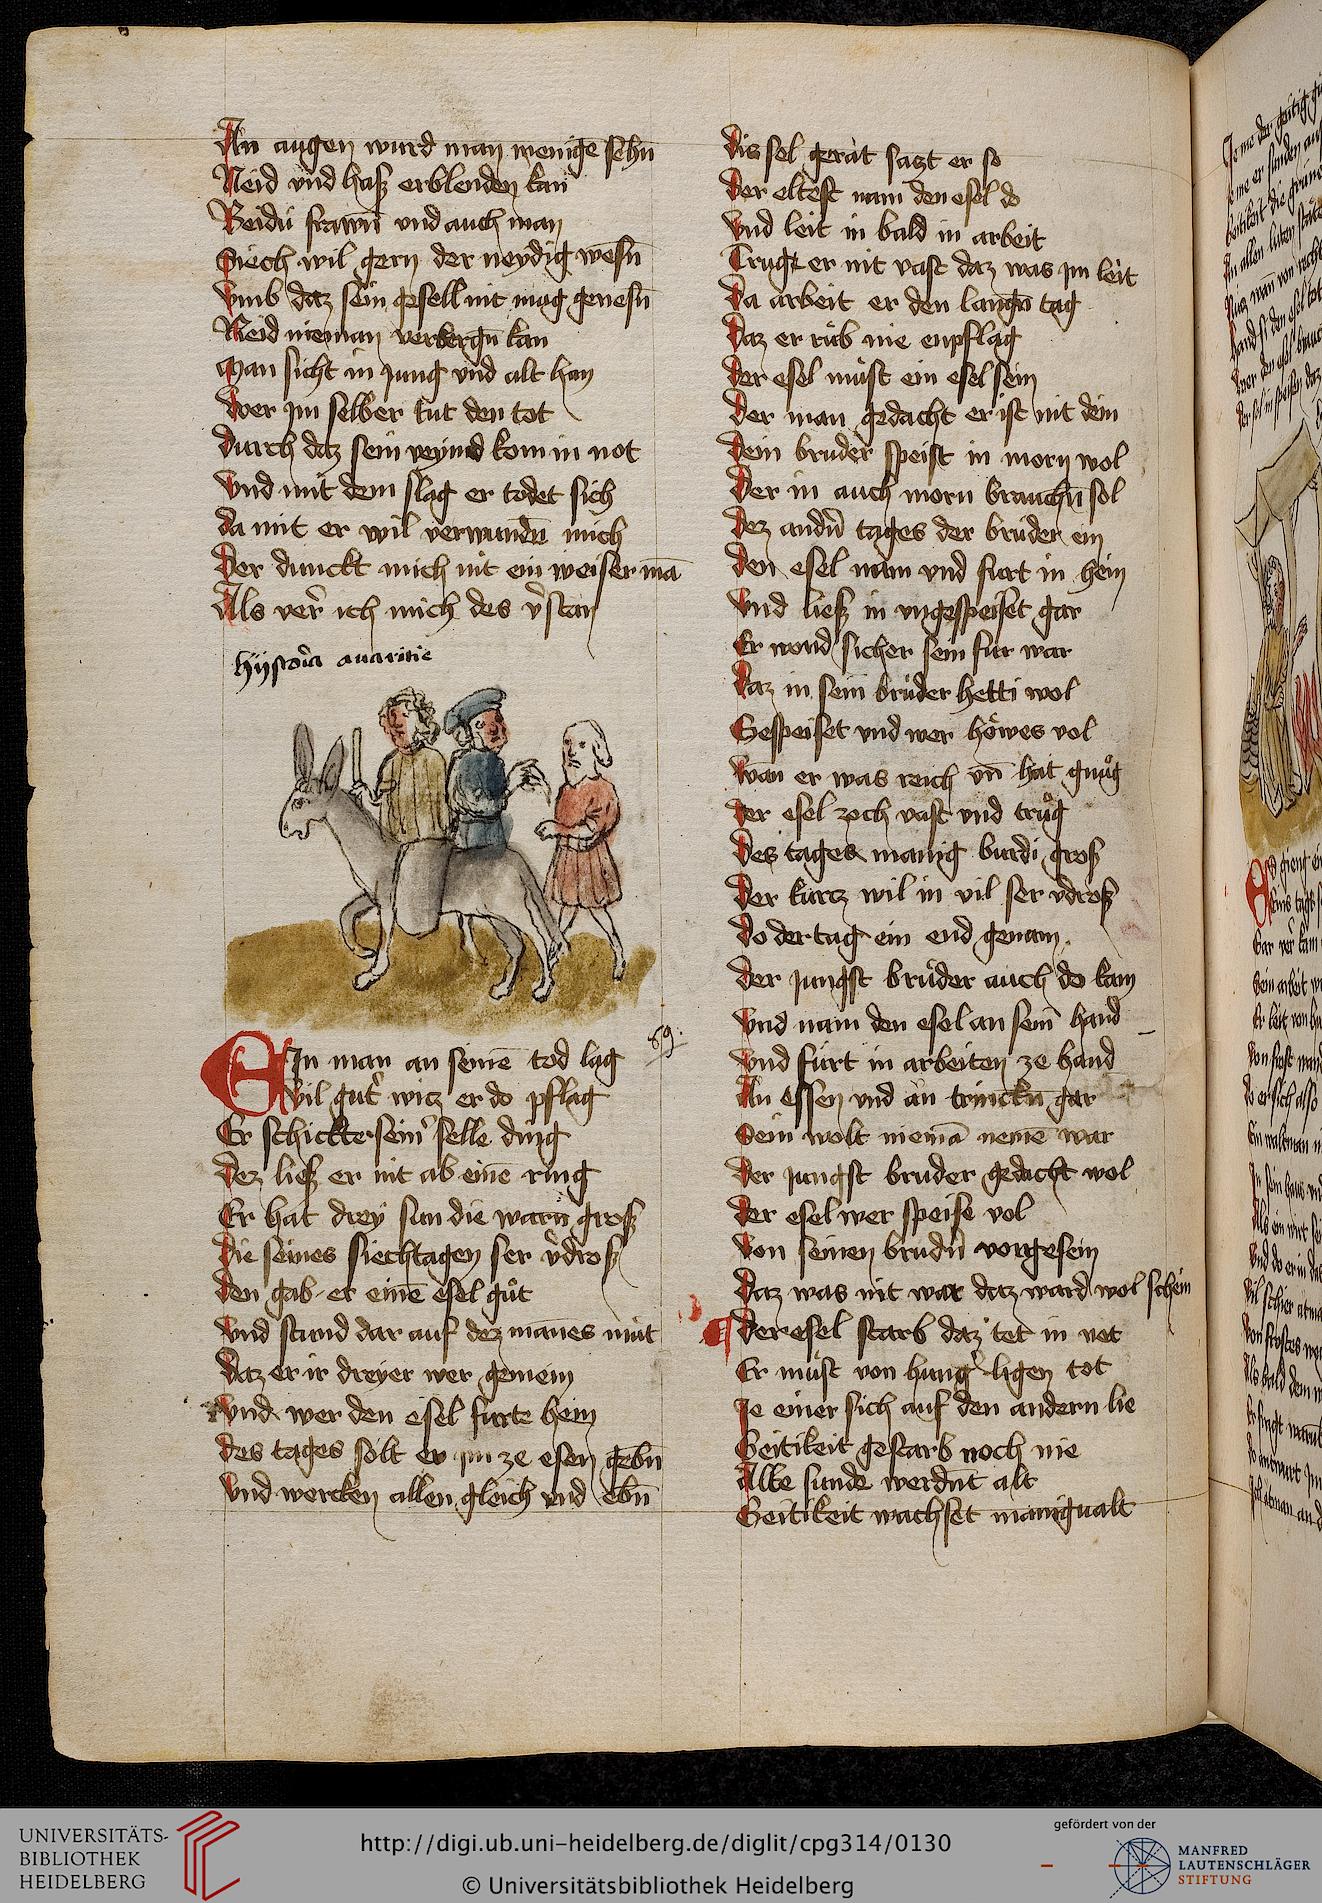 An augen wurd man wenigē sehn
Neid vnd hasz erblenden kan
Beidu frawn̄ vnd auch man
Siech wil gern der neydig wesn̄
Vmb daz sein gesell nit mag genesn̄
Neid nieman verbergn̄ kan
Man sicht in jung vnd alt han
Wer jm selber tut den tot
Durch daz sein veynd kom in not
Vnd mit dem slag er todet sich
Da mit er wil verwundn̄ mich
Der dunckt mich nit ein weiser mā
Als ver̄ ich mich des v̄stan
Hystoria auaritie
EIn man an seinē tod lag
Vil gut̄ wicz er do pflag
Er schickte sein̄ selle ding
Dez liesz er nit ab einē ring
Er hat drey sun die warn̄ grosz
Die seines siechtagen ser v̄drosz
Den gab er einē esel gůt
Vnd stund dar auf dez mānes můt
Daz er ir dreyer wer gemein
Vnd wer den esel furte hein
Des tages solt er jm ze esen gebn̄
Vnd wercken allen gleich vnd ebn̄
69.
Dis sel gerat sazt er so
Der eltest nam den esel do
Vnd leit in bald in arbeit
Trugt er nit vast daz was jm leit
Da arbeit er den langn̄ tag
Daz er růb nie enpflag
Der esel můst ein esel sein
Der man gedacht er ist nit dein
Dein bruder speist in morn wol
Der in auch morn brauchn̄ sol
Dez andn̄ tages der bruder ein
Den esel nam vnd furt in hein
Vnd liesz in vngespeiset gar
Er wond sicher sein fur war
Daz in sein brůder hetti wol
Gespeiset vnd wer höwes vol
Wan er was reich vn̄ hat gnůg
Der esel zoch vast vnd trůg
Des tages manig burdi grosz
Der kurcz wil in vil ser v̄drosz
Do der tag ein end genam
Der jungst brůder auch do kam
Vnd nam den esel an sein̄ hand
Vnd fůrt in arbeiten ze hand
An essen vnd an trinckn̄ gar
Sein wolt niemā nemē war
Der jungst bruder gedacht wol
Der esel wer speise vol
Von seinen brudn̄ vorgesein
Daz was nit war daz ward wol schein
Der esel starb daz tet in not
Er můst von hunḡ ligen tot
Je einer sich auf den andern lie
Geitikeit gestarb noch nie
Alle sunde werdnt alt
Geitikeit wachset manigualt
UNIVERSITÄTS-
BIBLIOTHEK
HEIDELBERG
http://digi.ub.uni-heidelberg.de/diglit/cpg314/0130
© Universitätsbibliothek Heidelberg
gefördert von der
MANFRED
LAUTENSCHLÄGER
STIFTUNG